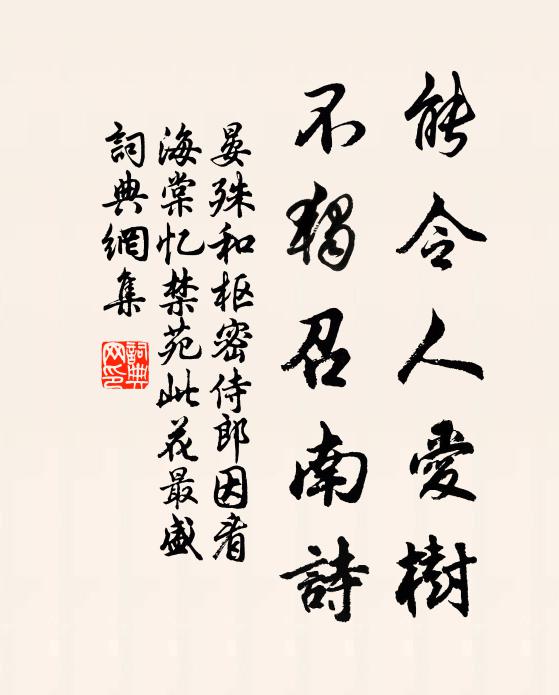 能令人愛樹
不獨召南詩
晏殊和枢密侍郎因看
海棠忆禁苑此花最盛
詞典網集
詞典網印